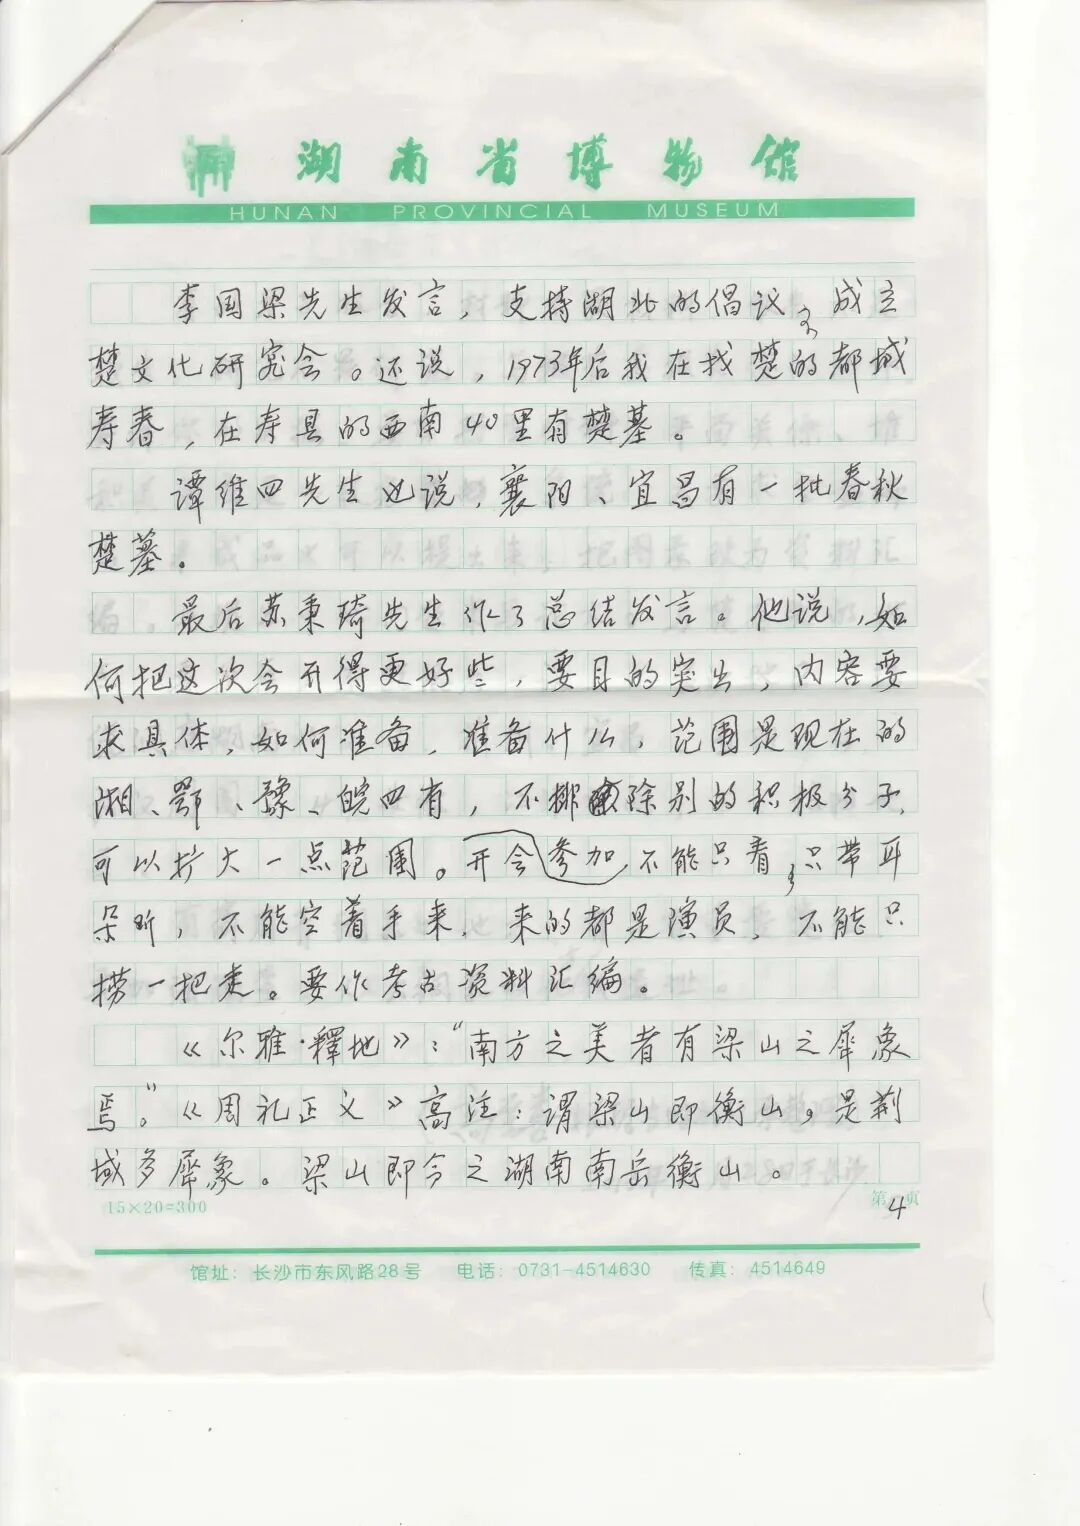 湖南省博物馆
HUNAN PROVINCIAL MUSEUM
李国梁先生发言，支持湖北的倡议，成立
楚文化研究会。还说，1973年后我在找楚的都城
寿春，在寿县的西南40里有楚墓。
谭维四先生也说，襄阳、宜昌有一批春秋
楚墓.
最后苏秉琦先生作了总结发言。他说，如
何把这次会开得更好些，要目的突出，内容要
求具体，如何准备，准备什么，范围是现在的
湘、鄂、豫、皖四省，不排除别的积极分子，
可以扩大一点范围。开会参加，不能只看，只带耳
朵听，不能空着手来，来的都是演员，不能只
捞一把走。要作考古资料汇编。
《尔雅·释地》：“南方之美者有梁山之犀象
焉。”《周礼正义》高注：谓梁山即衡山，是荆
域多犀象。梁山即今之湖南南岳衡山。
15×20=300
第4页
馆址：长沙市东风路28号 电话：0731-4514630 传真：4514649